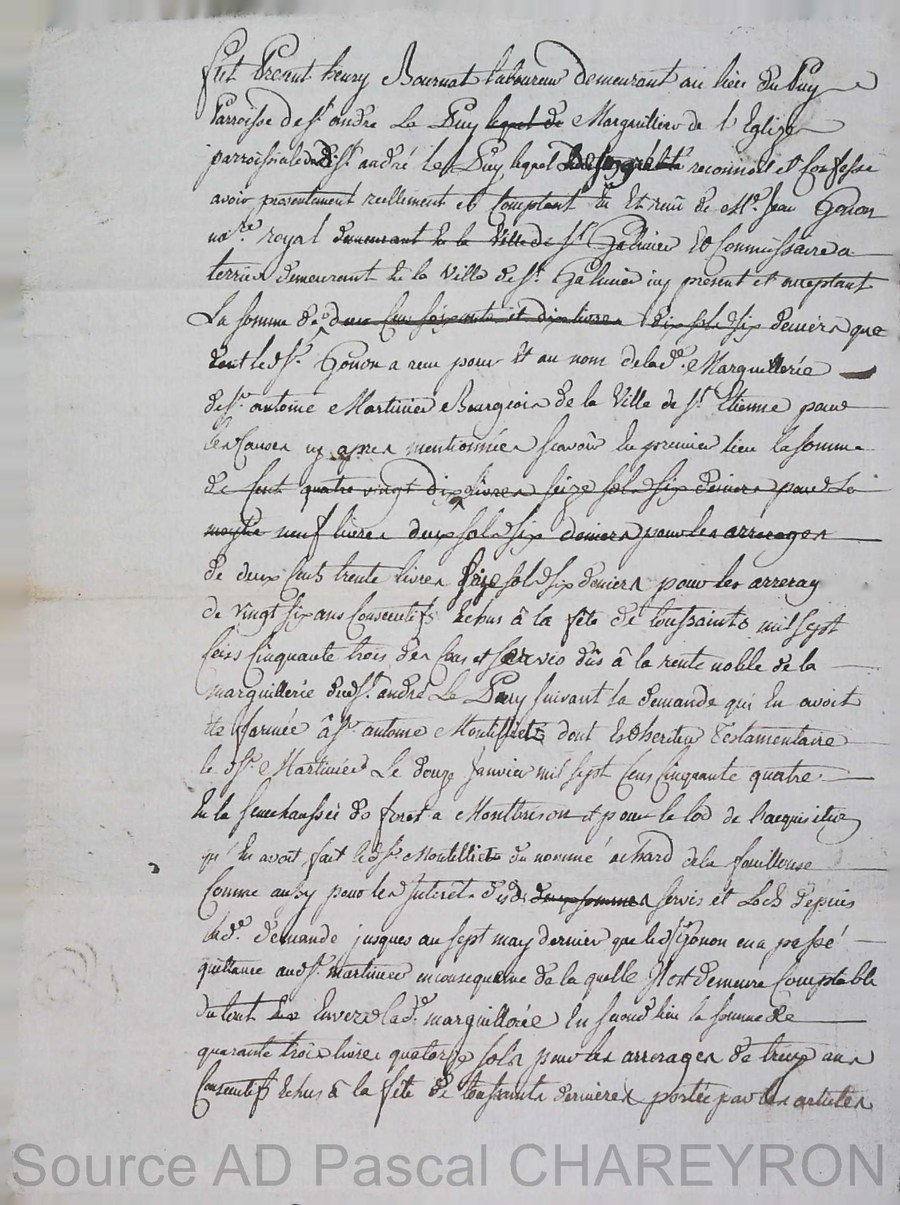 fut Present henry Bournat laboureur demeurant au lieu du Puy
Parroisse de st. andre Le Puy lequel de Marguillier de l'Eglize
parroissialle de st. andré le Puy lequel de son gré reconnoit et Confesse
avoir presentement reellement et Comptant Eu Et reçu de Me. Jean Gonon
nore. royal demeurant en la Ville de st. Galmier Et Commissaire a
terrier demeurant en la Ville de st. Galmier icy present et acceptant
La somme de deux Cens soixante et dix livres dix sols six deniers que
dont led. sr. Gonon a reçu pour Et au nom de lade. Marguillerie
de sr. antoine Martinier Bourgeois de la Ville de St. Etienne pour
les Causes cy apres mentionnées scavoir En premier lieu la somme
de Cent quatre vingt dix livres seize sols six deniers pour La
moytie neuf livres deux sols six deniers pour les arrerages
de deux Cents trente livres seize sols six deniers pour les arrerag
de vingt six ans Consecutifs Echus â la fête de toussaints mil sept
Cens Cinquante trois des Cens et servis dûs â la rente noble de la
marguillerie dud. st. andré Le Puy suivant la demande qui En avoit
Ete formée â sr. antoine Montelliet dont Est heritier Testamentaire
le d. sr. Martinier Le douze Janvier mil sept Cens Cinquante quatre
En la senechaussée de forest a Montbrison et pour le lod de l'acquisition
qu'En avoit fait led. sr. Montelliet du nommé achard de la fouillouse
Comme aussy pour les Interets desd. deux sommes servis et Lods depuis
lade. demande jusques au sept may dernier que led. sr. Gonon en a passé
quittance aud. sr. martinier in consequence de la quelle Il est demeuré Comptable
du tout Envers lade. marguillerie En second lieu la somme de
quarante trois livres quatorze sols pour les arrerages de treize ans
Consecutifs Echus â la fête de toussaints derniere portée par les articles
Source AD Pascal CHAREYRON